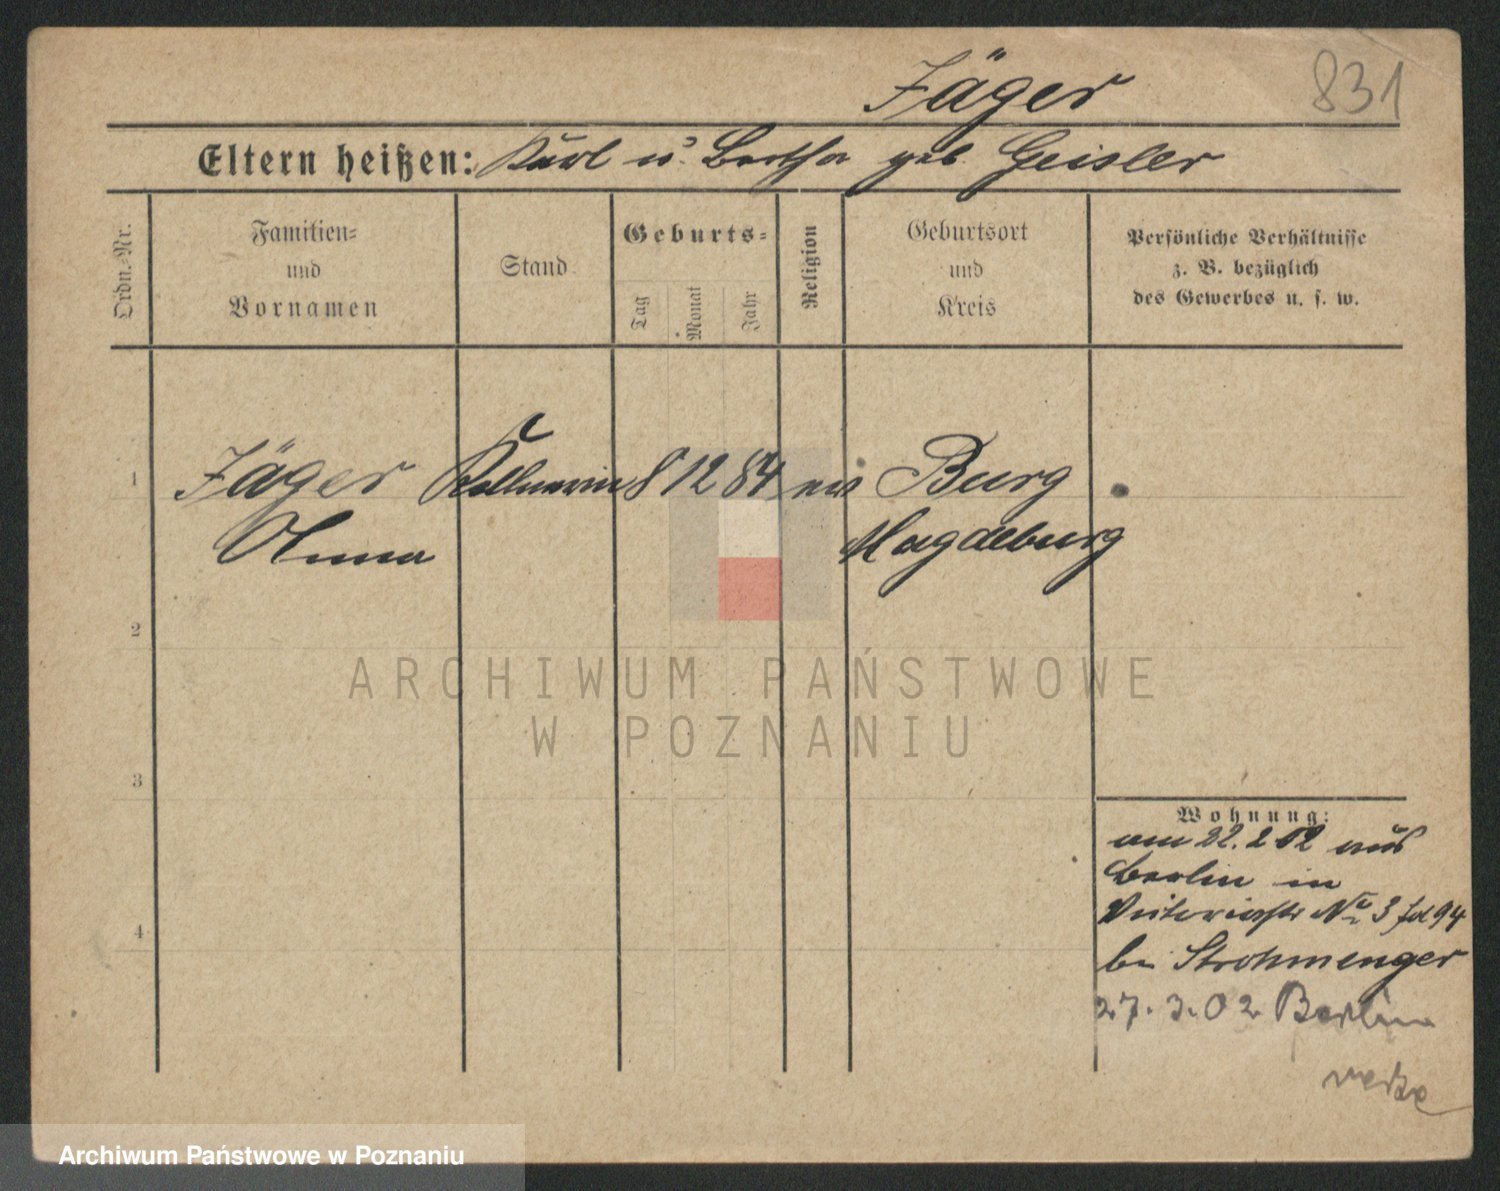 Jäger 831
Eltern heißen: Karl u. Bertha geb. Geisler
Ordn.-Nr.
Familien-
und
Vornamen
Stand
Geburts-
Tag
Monat
Jahr
Religion
Geburtsort
und
Kreis
Persönliche Verhältnisse
z. B. bezüglich
des Gewerbes u. s. w.
1 Jäger Kellnerin 8 12 84 ev Burg
Anna Magdeburg
2
ARCHIWUM PAŃSTWOWE
W POZNANIU
3
Wohnung:
am 22. 2 02 aus
Berlin in
Victoriastr No 3 94
bei Strohmenger
4
27. 3. 02 Berlin
Archiwum Państwowe w Poznaniu